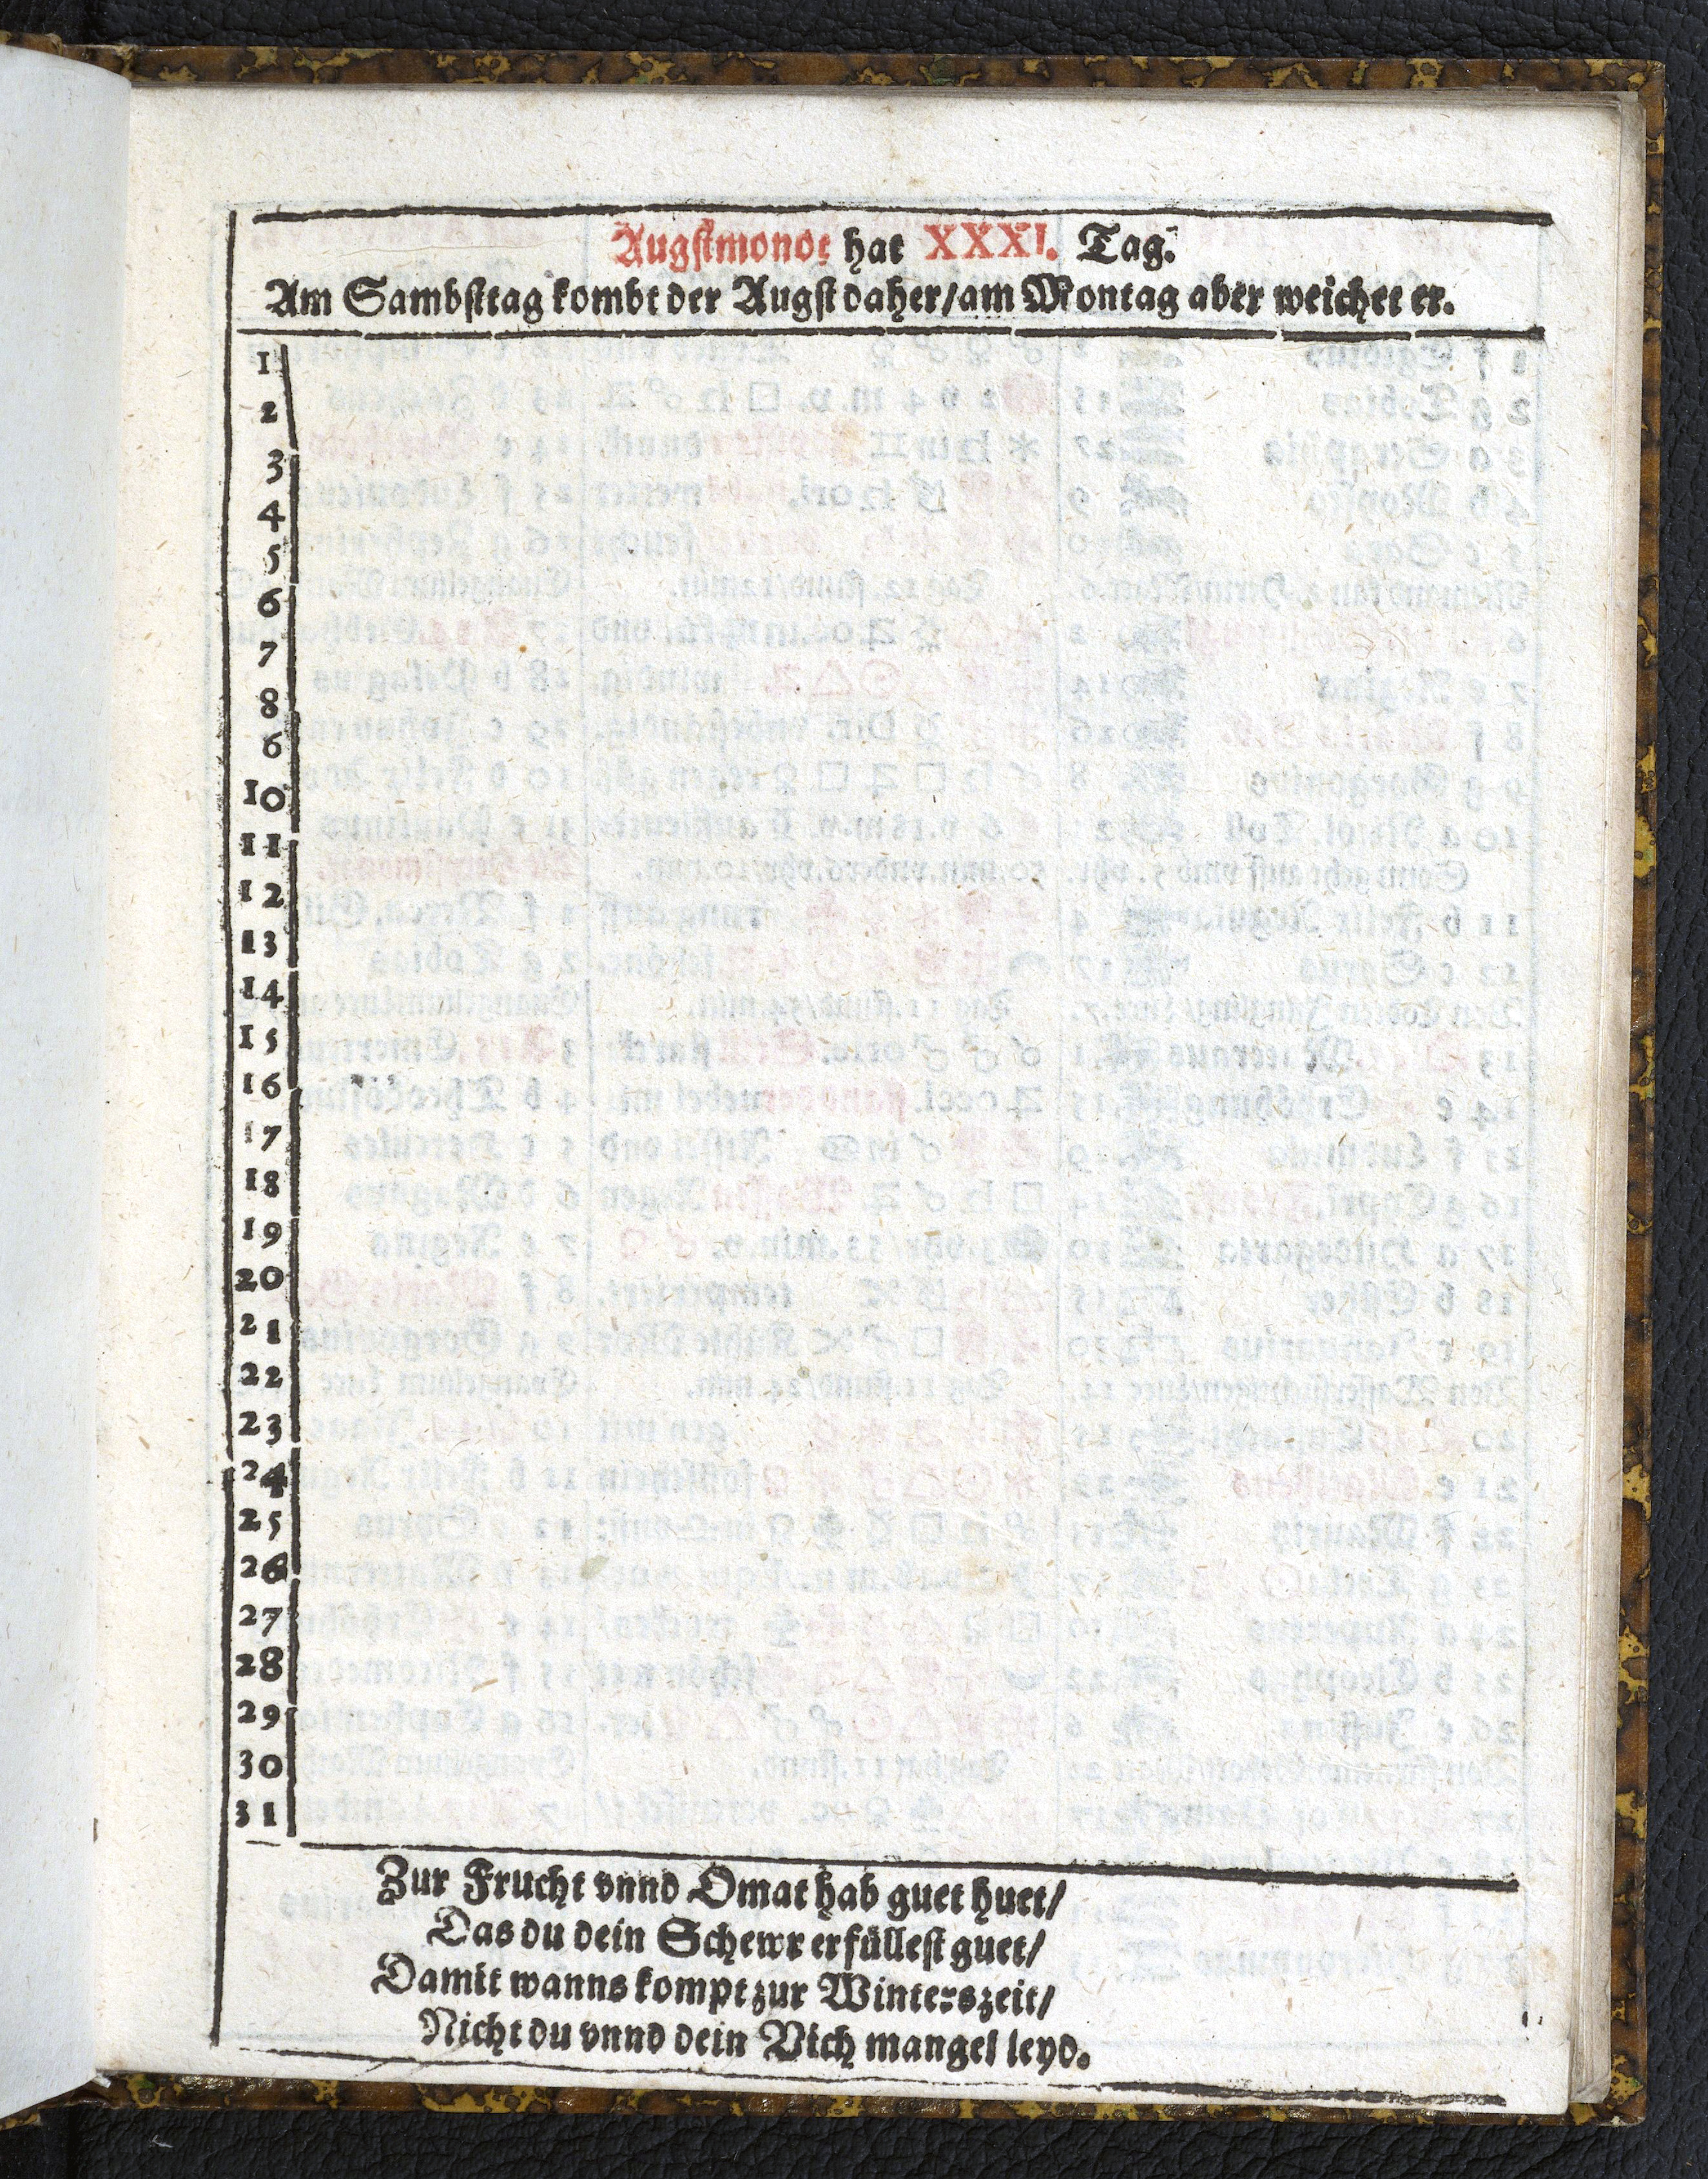 Augstmonot hat XXXI. Tag.
Am Sambsttag kombt der Augst daher/am Montag aber weichet er.
1
2
3
4
5
6
7
8
6
10
11
12
13
14
15
16
17
18
19
20
21
22
23
24
25
26
27
28
29
30
31
Zur Frucht vnnd Omat hab guet huet/
Das du dein Schewr erfüllest guet/
Damit wanns kompt zur Winterszeit/
Nicht du vnnd dein Vich mangel leyd.